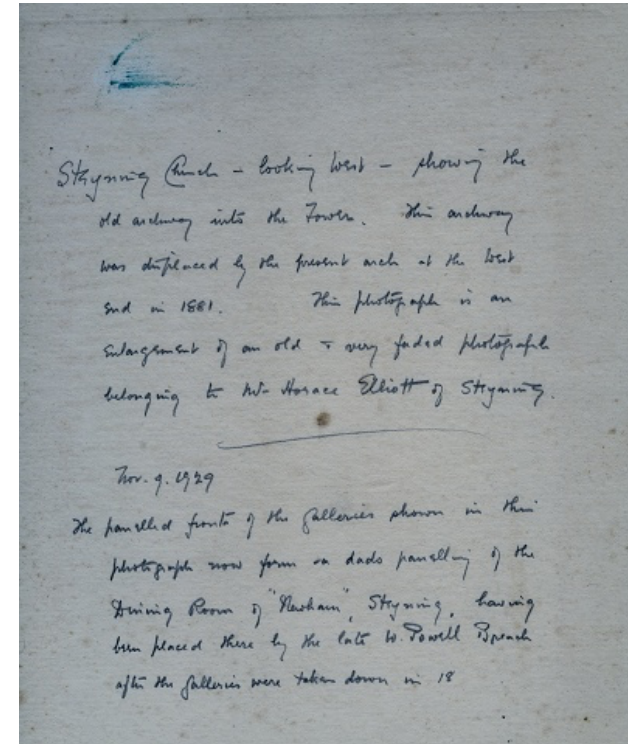 Steyning Church – looking West – showing the
old archway into the Tower. This archway
was displaced by the present arch at the West
end in 1881. This photograph is an
enlargement of an old & very faded photograph
belonging to Mr Horace Elliott of Steyning.
Nov. 9. 1929
The panelled fronts of the galleries shown in this
photograph now form a dado panelling of the
Dining Room of "Newham", Steyning, having
been placed there by the late W. Powell Breach
after the galleries were taken down in 18